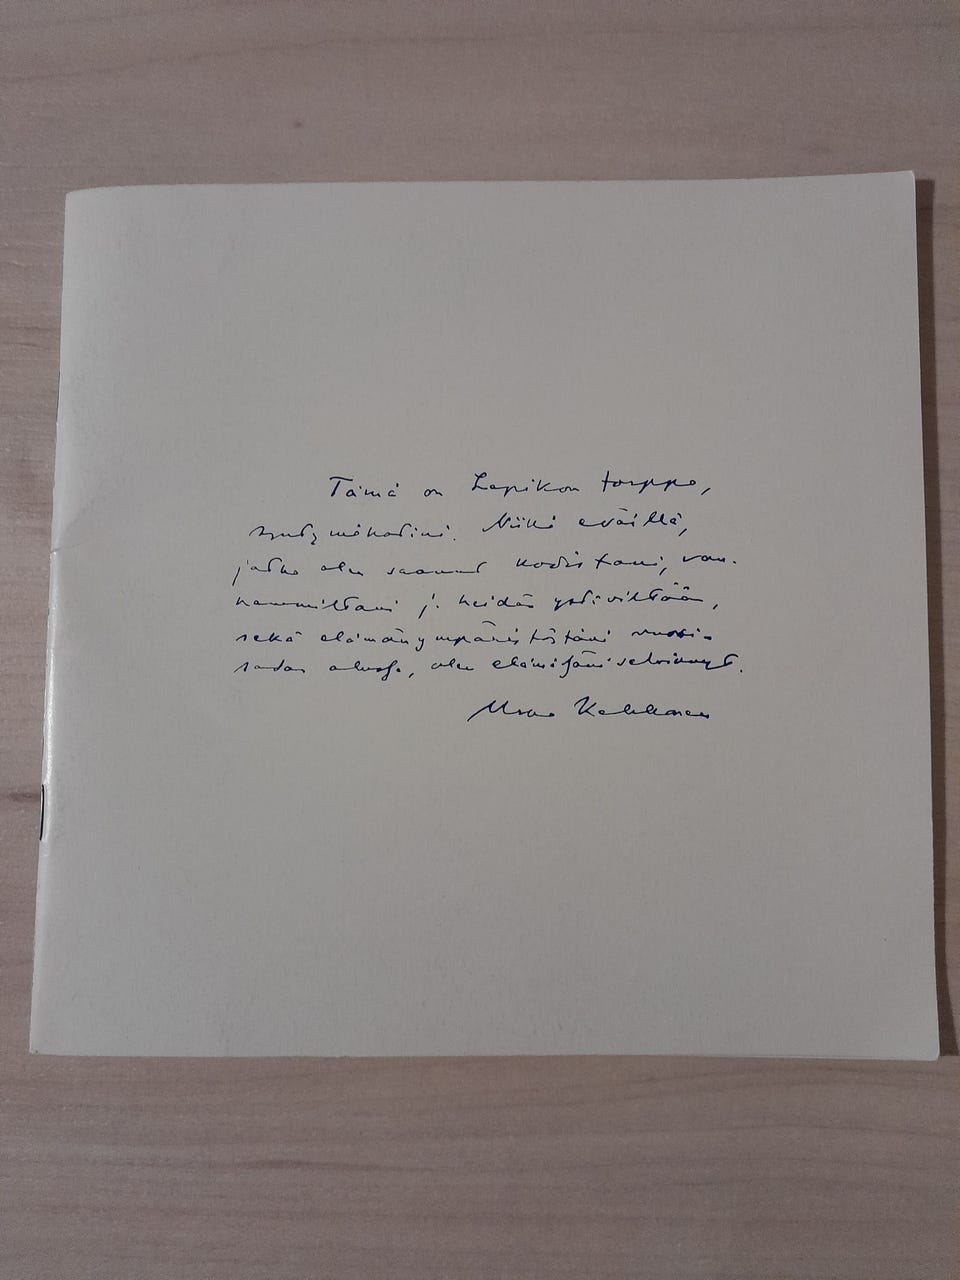 Tämä on Lepikon torppa,
syntymäkotini. Niillä eväillä,
jotka olen saanut kodistani, van-
hemmiltani ja heidän ystäviltään,
sekä elämänympäristöstäni vuosi-
sadan alussa, olen elämässäni selvinnyt.
Urho Kekkonen